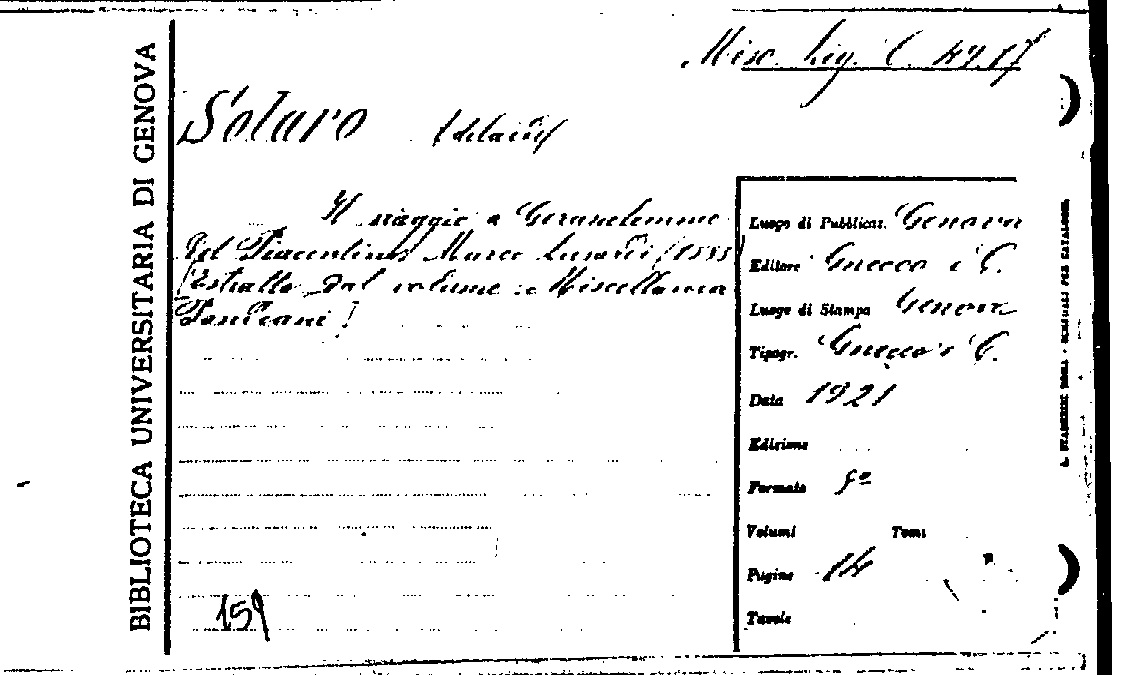 BIBLIOTECA UNIVERSITARIA DI GENOVA
Misc. Lig. C. 49.17
Solaro (Adelaide)
Il viaggio a Gerusalemme
del Piacentino Marco Lunardi (1555)
[Estratto dal volume: Miscellanea
Pandiani]
159
Luogo di Pubblicaz. Genova
Editore Gnecco e C.
Luogo di Stampa Genova
Tipogr. Gnecco e C.
Data 1921
Edizione
Formato 8º
Volumi Tomi
Pagine 14
Tavole